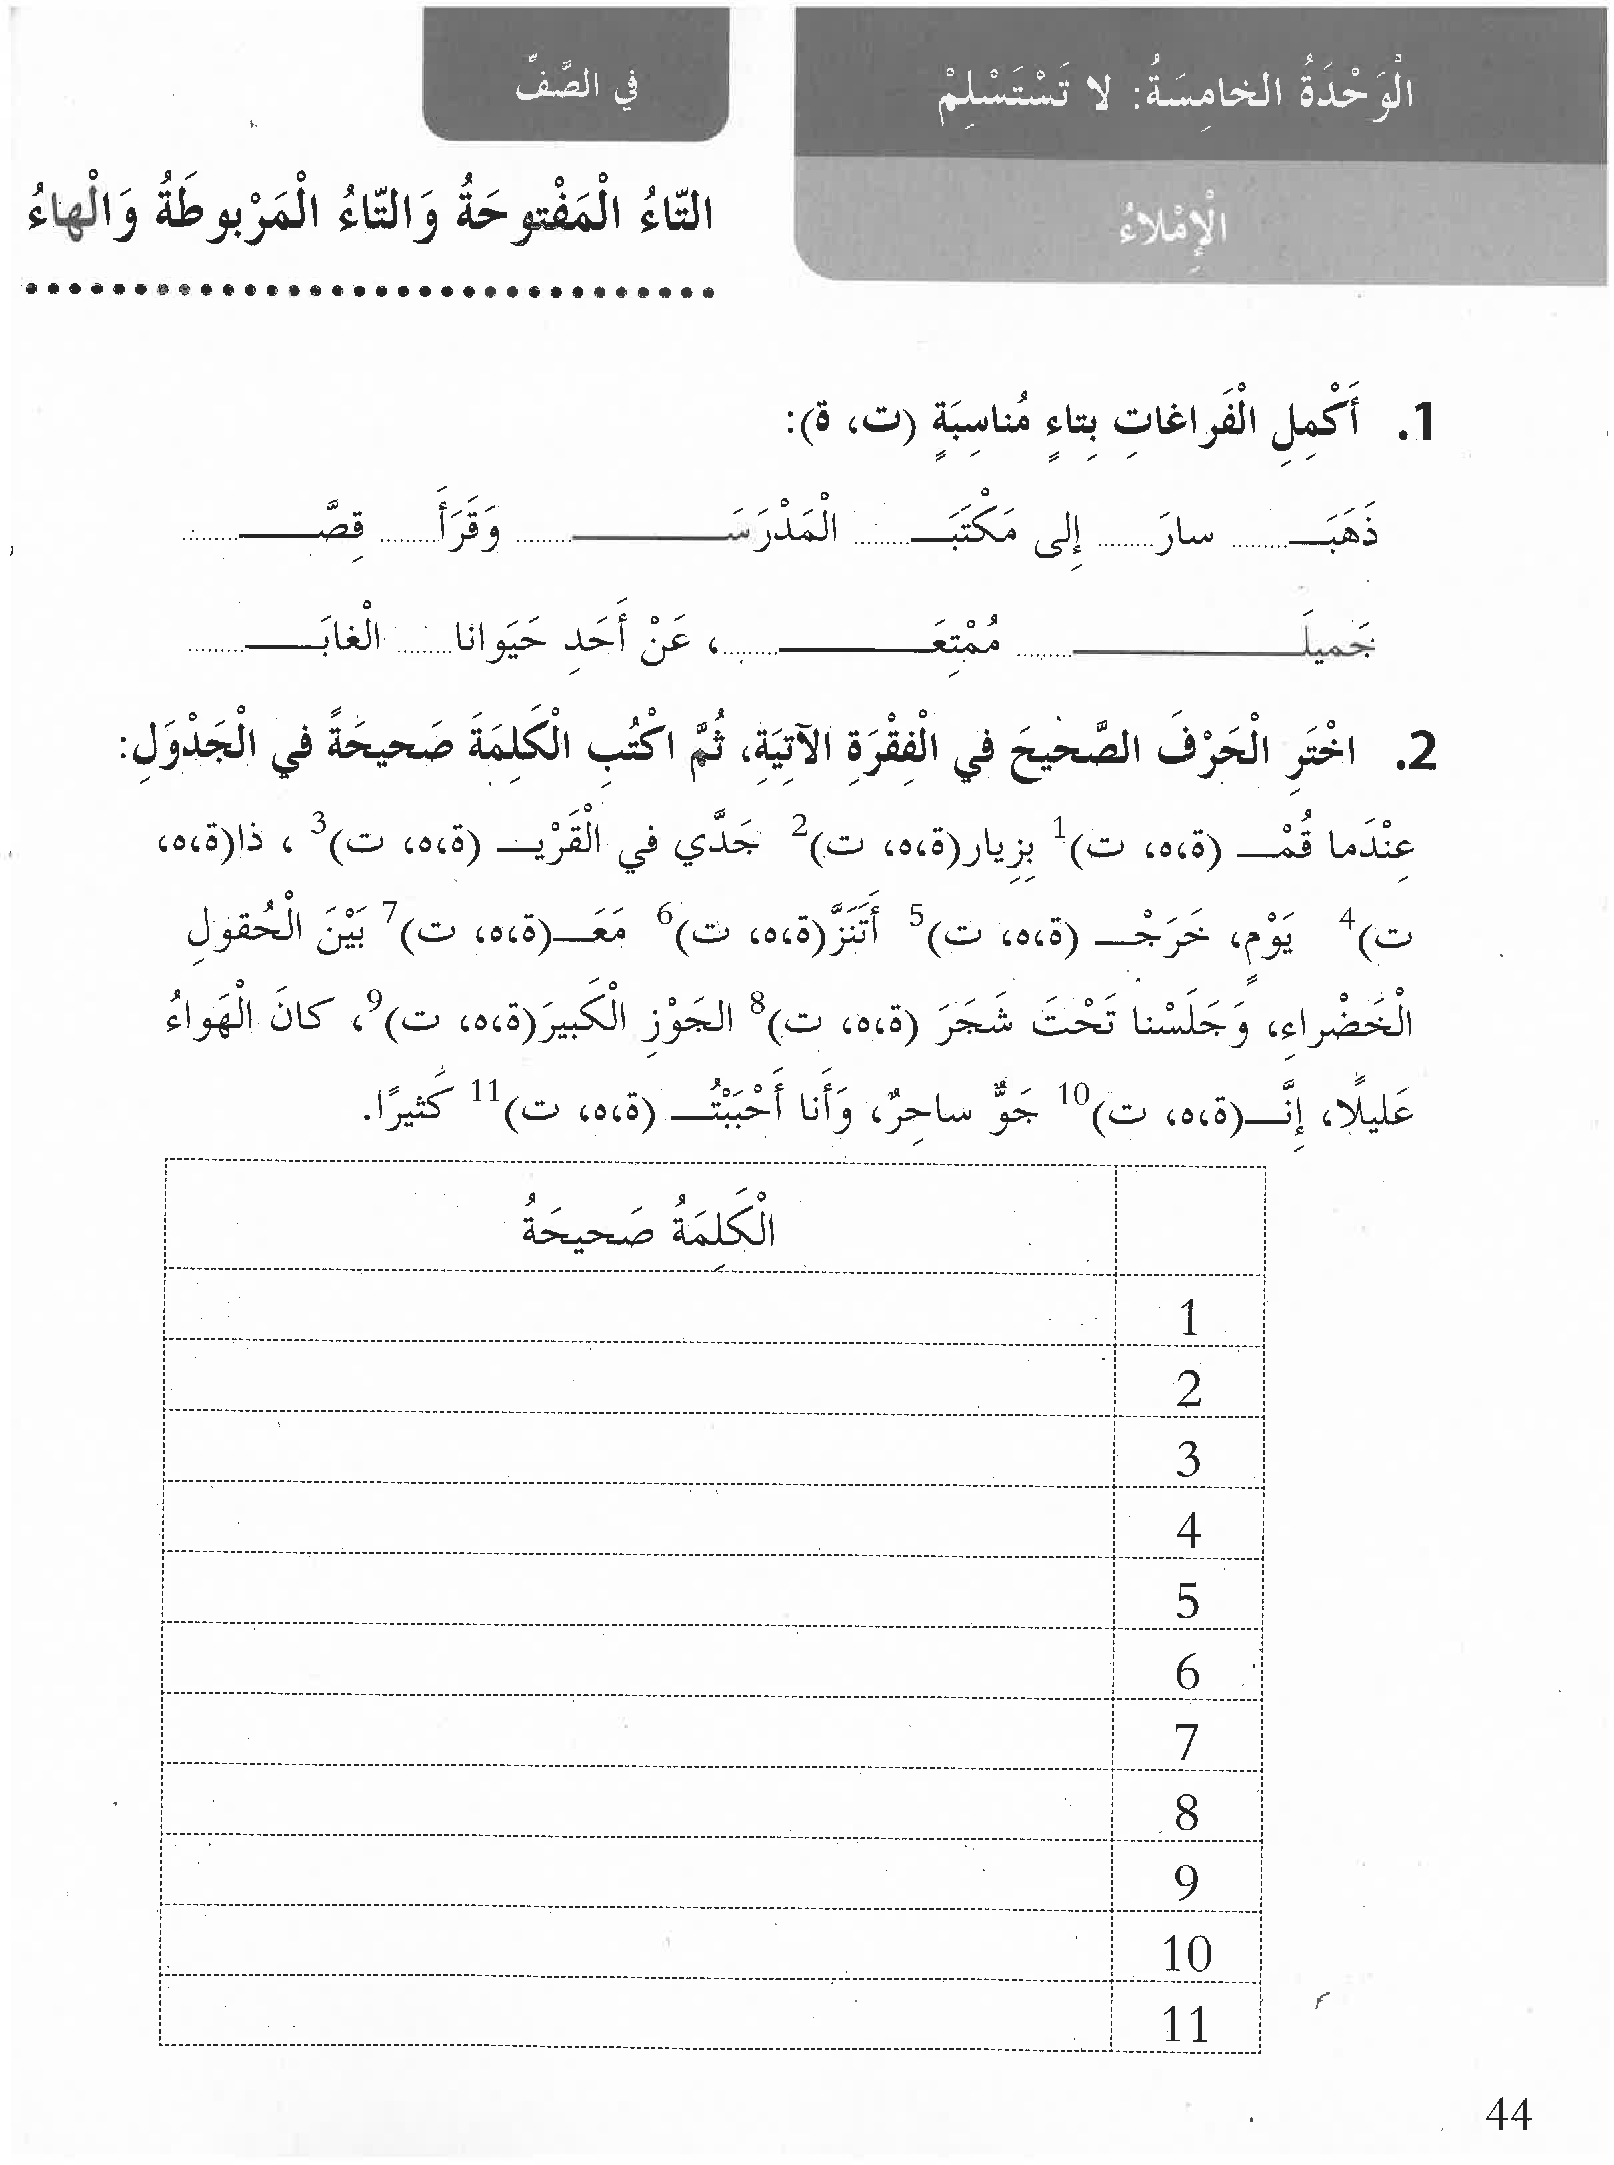 الْوَحْدَةُ الخامِسَةُ: لا تَسْتَسْلِمْ
في الصَّفِّ
الْإِمْلاءُ
التّاءُ الْمَفْتوحَةُ وَالتّاءُ الْمَرْبوطَةُ وَالْهاءُ
1. أَكْمِلِ الْفَراغاتِ بِتاءٍ مُناسِبَةٍ (ت، ة):
ذَهَبَـــ........ سارَ........ إِلى مَكْتَبَـــ........ الْمَدْرَسَـــ........ وَقَرَأَ........ قِصَّـــ........
جَميلَـــ........ مُمْتِعَـــ........، عَنْ أَحَدِ حَيَوانا........ الْغابَـــ........
2. اخْتَرِ الْحَرْفَ الصَّحيحَ في الْفِقْرَةِ الآتِيَةِ، ثُمَّ اكْتُبِ الْكَلِمَةَ صَحيحَةً في الْجَدْوَلِ:
عِنْدَما قُمْـــ (ة،ه، ت)1 بِزِيار(ة،ه، ت)2 جَدّي في الْقَرْيـــ (ة،ه، ت)3 ، ذا(ة،ه،
ت)4 يَوْمٍ، خَرَجْـــ (ة،ه، ت)5 أَتَنَزَّ(ة،ه، ت)6 مَعَـــ(ة،ه، ت)7 بَيْنَ الْحُقولِ
الْخَضْراءِ، وَجَلَسْنا تَحْتَ شَجَرَ (ة،ه، ت)8 الجَوْزِ الْكَبيرَ(ة،ه، ت)9، كانَ الْهَواءُ
عَليلًا، إِنَّـــ(ة،ه، ت)10 جَوٌّ ساحِرٌ، وَأَنا أَحْبَبْتُـــ (ة،ه، ت)11 كَثيرًا.
الْكَلِمَةُ صَحيحَةُ
1
2
3
4
5
6
7
8
9
10
11
44